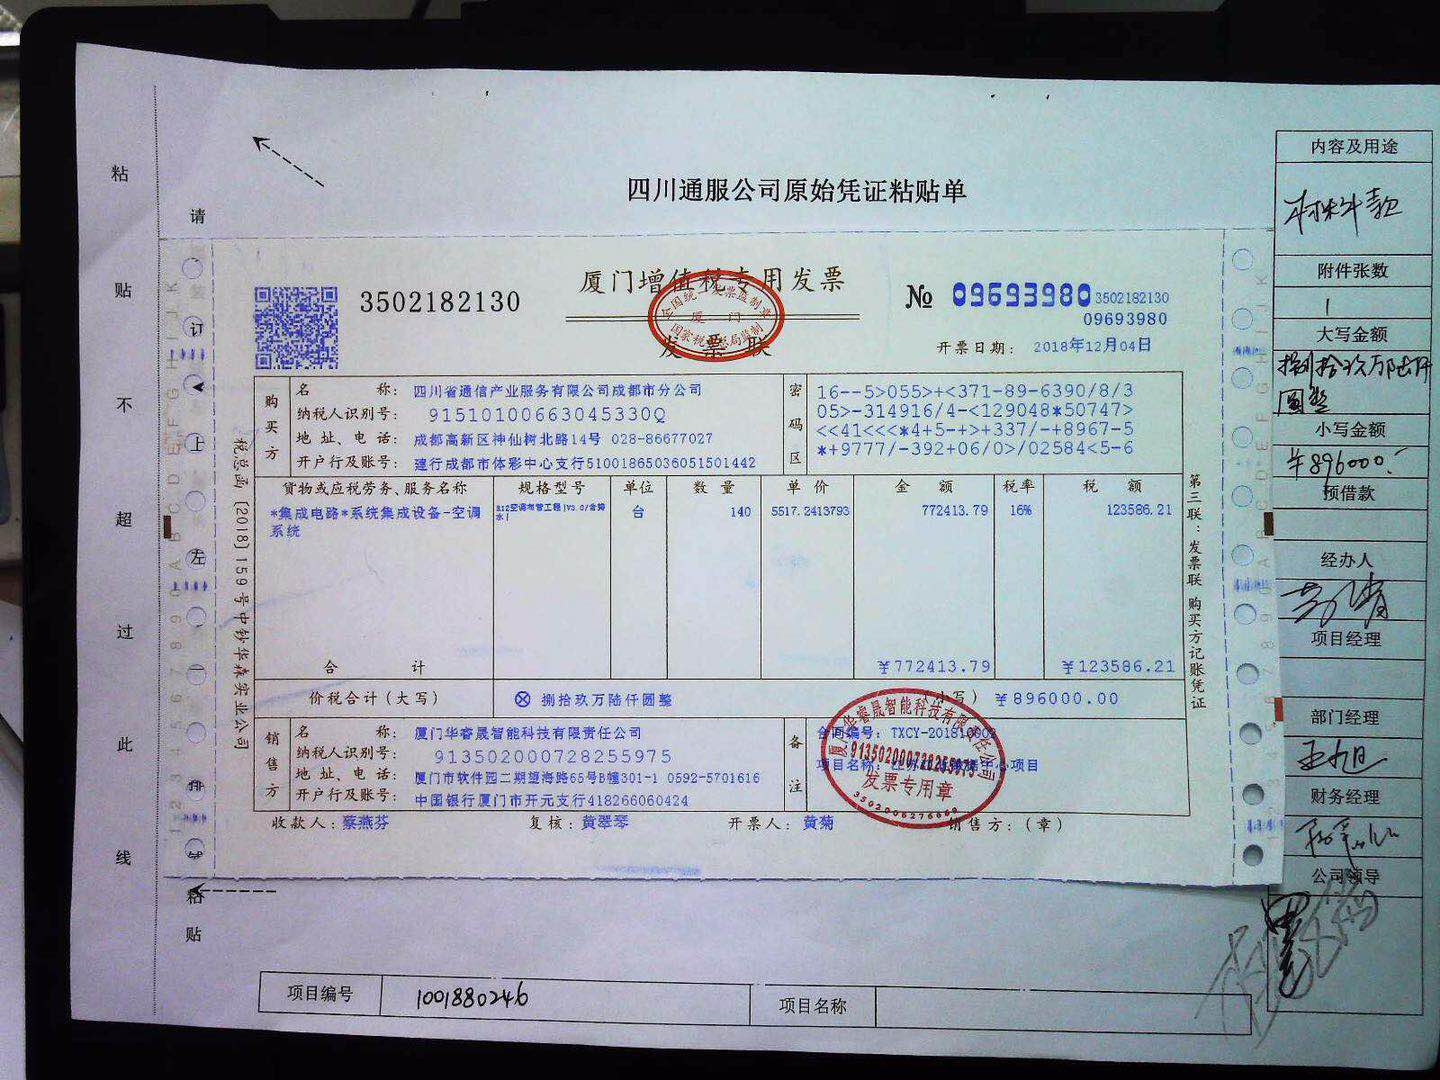 四川通服公司原始凭证粘贴单
粘贴不超过此线
请订上左
粘贴
厦门增值税专用发票
发票联
全国统一发票监制章
厦门
3502182130
№ 09693980
3502182130
09693980
开票日期: 2018年12月04日
税总函〔2018〕159号中钞华森实业公司
购买方
名称: 四川省通信产业服务有限公司成都市分公司
纳税人识别号: 91510100663045330Q
地址、电话: 成都高新区神仙树北路14号 028-86677027
开户行及账号: 建行成都市体彩中心支行51001865036051501442
密码区
16--5>055>+<371-89-6390/8/3
05>-314916/4-<129048*50747>
<<41<<<*4+5-+>+337/-+8967-5
*+9777/-392+06/0>/02584<5-6
货物或应税劳务、服务名称 规格型号 单位 数量 单价 金额 税率 税额
*集成电路*系统集成设备-空调系统 台 140 5517.2413793 772413.79 16% 123586.21
合计 ¥772413.79 ¥123586.21
价税合计(大写) ⊗ 捌拾玖万陆仟圆整 (小写) ¥896000.00
销售方
名称: 厦门华睿晟智能科技有限责任公司
纳税人识别号: 913502000728255975
地址、电话: 厦门市软件园二期望海路65号B幢301-1 0592-5701616
开户行及账号: 中国银行厦门市开元支行418266060424
备注
合同编号: TXCY-201810002
项目名称: 中心项目
厦门华睿晟智能科技有限责任公司
913502000728255975
发票专用章
收款人: 蔡燕芬 复核: 黄翠琴 开票人: 黄菊 销售方: (章)
第三联: 发票联 购买方记账凭证
内容及用途
材料款
附件张数
1
大写金额
捌拾玖万陆仟
圆整
小写金额
¥896000.-
预借款
经办人
项目经理
部门经理
王旭
财务经理
公司领导
项目编号 1001880246 项目名称